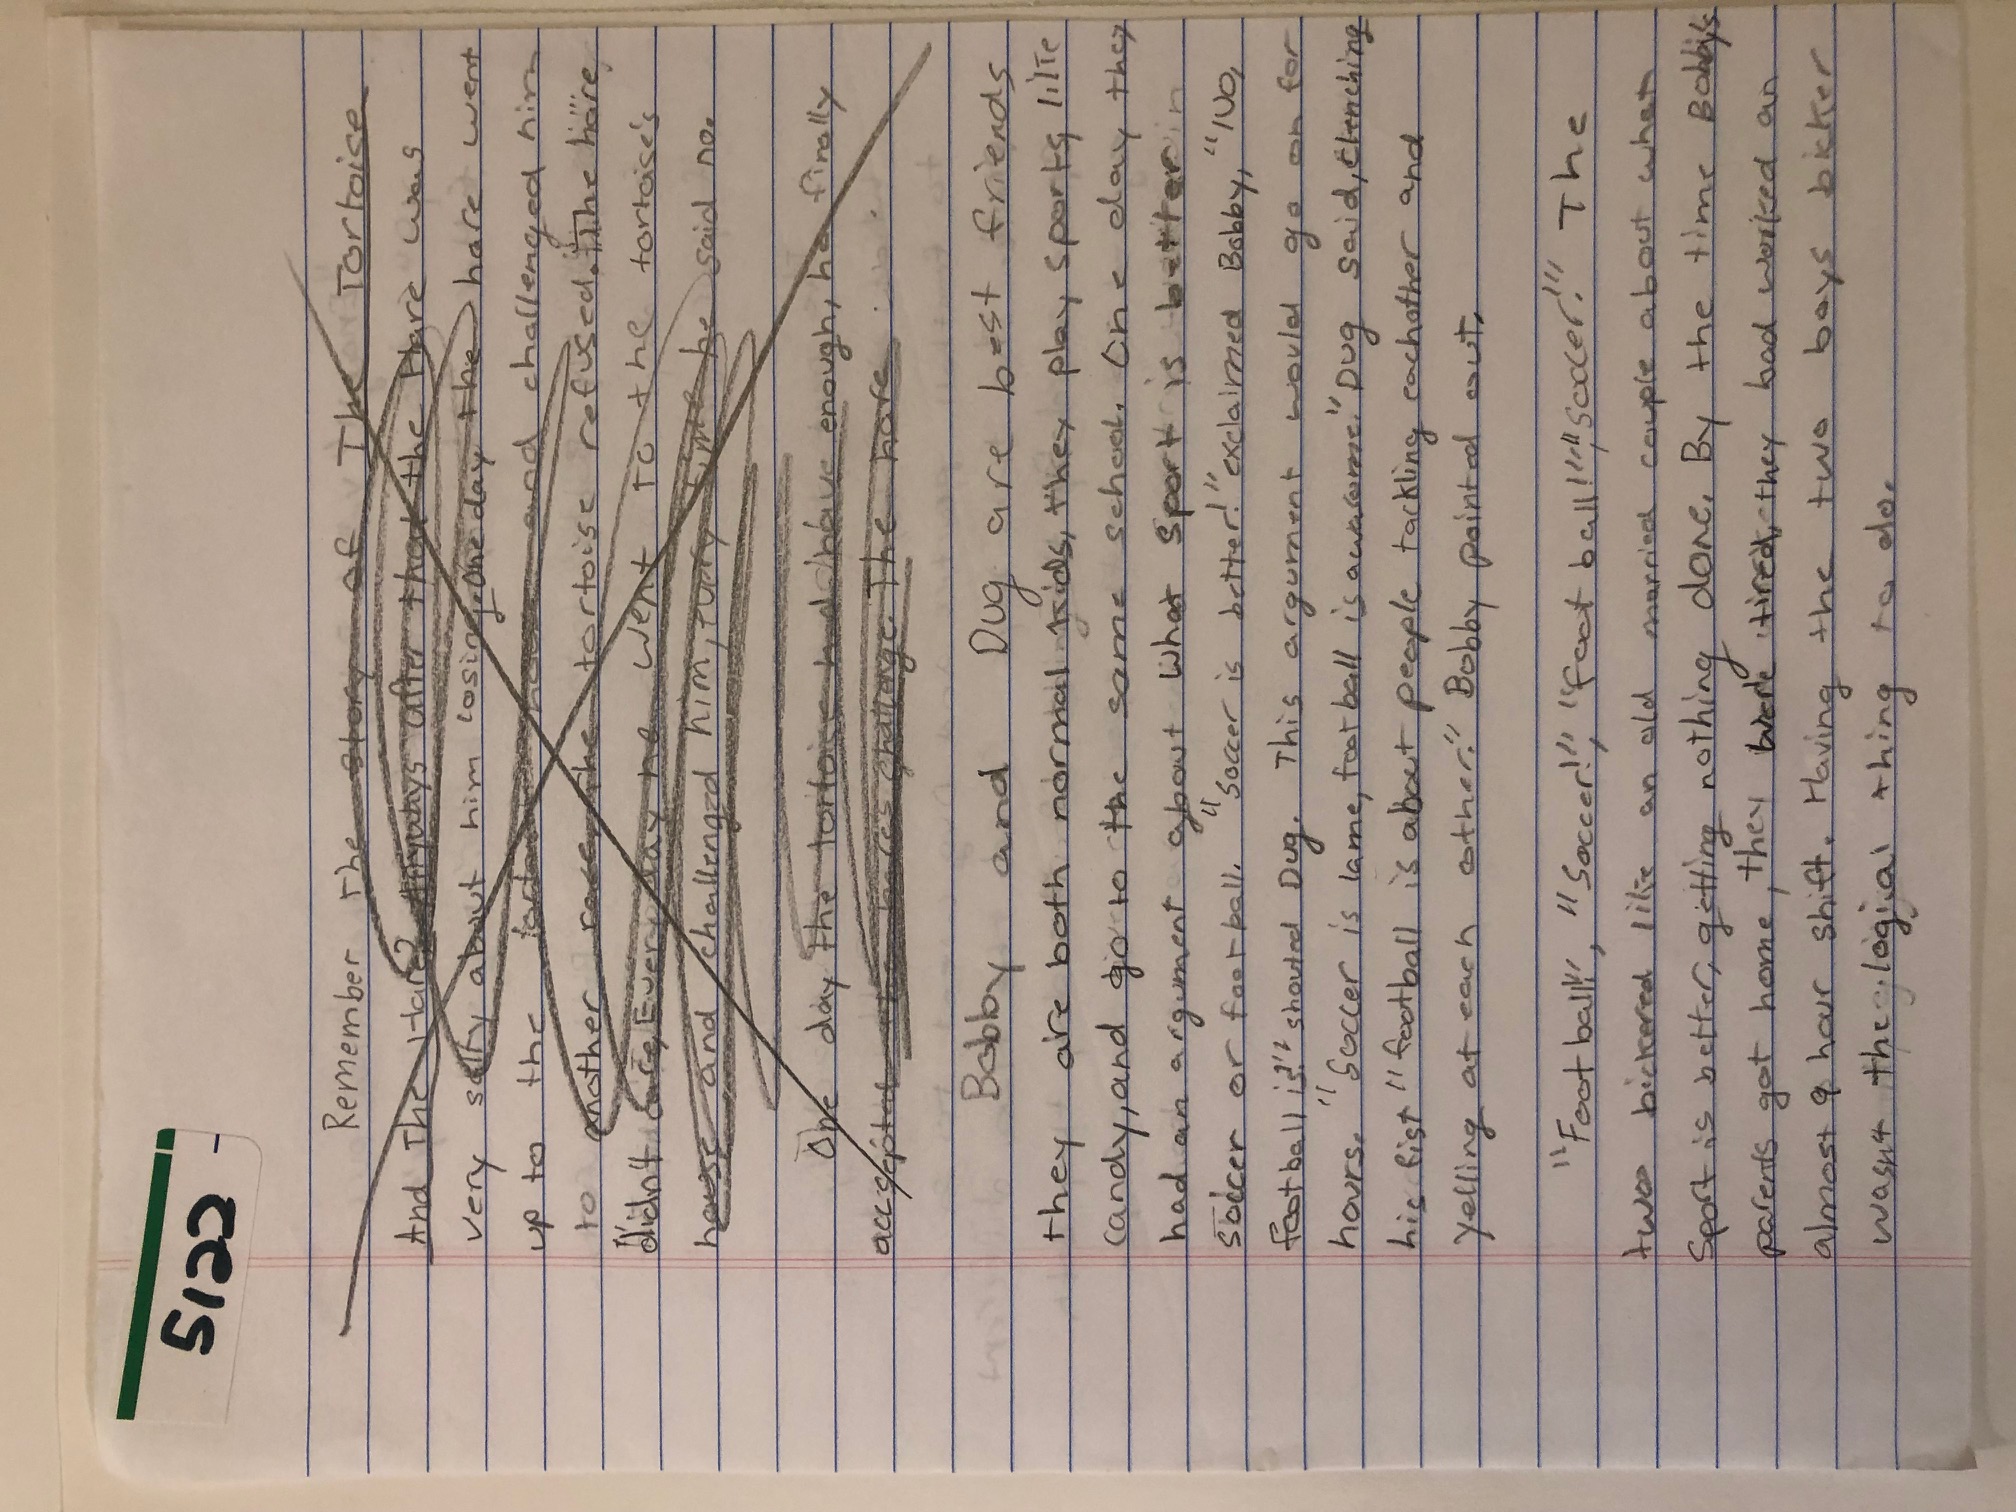 5122
Remember the story of The Tortoise
And The Hare? Anyways after that the Hare was
very salty about him losing. One day the hare went
up to the house and challenged him
to another race, The tortoise refused. The hare
didn't care, Every day he went to the tortoise's
house and challenged him, every time he said no.
One day the tortoise had have enough, he finally
the hares challenge. The hare
Bobby and Dug are best friends
they are both normal kids, they play sports, like
candy, and go to the same school. One day they
had an argument about what sport is better
soccer or football. "Soccer is better!" exclaimed Bobby, "NO,
football is!" shouted Dug. This argument would go on for
hours. "Soccer is lame, football is awasome." Dug said, clenching
his fist "football is about people tackling eachother and
yelling at each other." Bobby pointed out.
"Football!", "Soccer!", "football!", "soccer!" The
two bickered like an old married couple about what
sport is better, getting nothing done. By the time Bobby's
parents got home, they were tired, they had worked an
almost 9 hour shift. Having the two boys bicker
wasn't the logical thing to do.